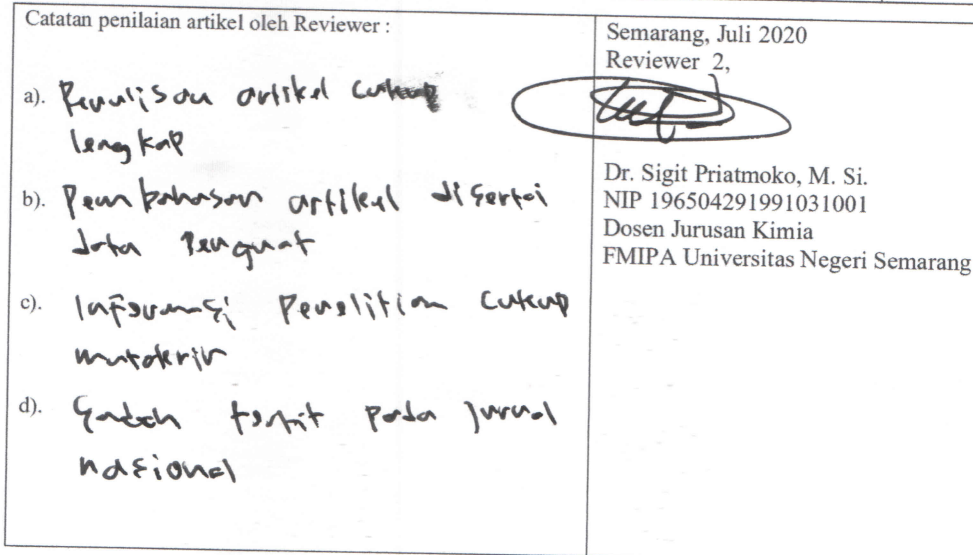 Catatan penilaian artikel oleh Reviewer :
a). Penulisan artikel cukup
lengkap
b). Pembahasan artikel disertai
data penguat
c). Informasi Penelitian cukup
mutakhir
d). Sudah terbit pada jurnal
nasional
Semarang, Juli 2020
Reviewer 2,
Dr. Sigit Priatmoko, M. Si.
NIP 196504291991031001
Dosen Jurusan Kimia
FMIPA Universitas Negeri Semarang